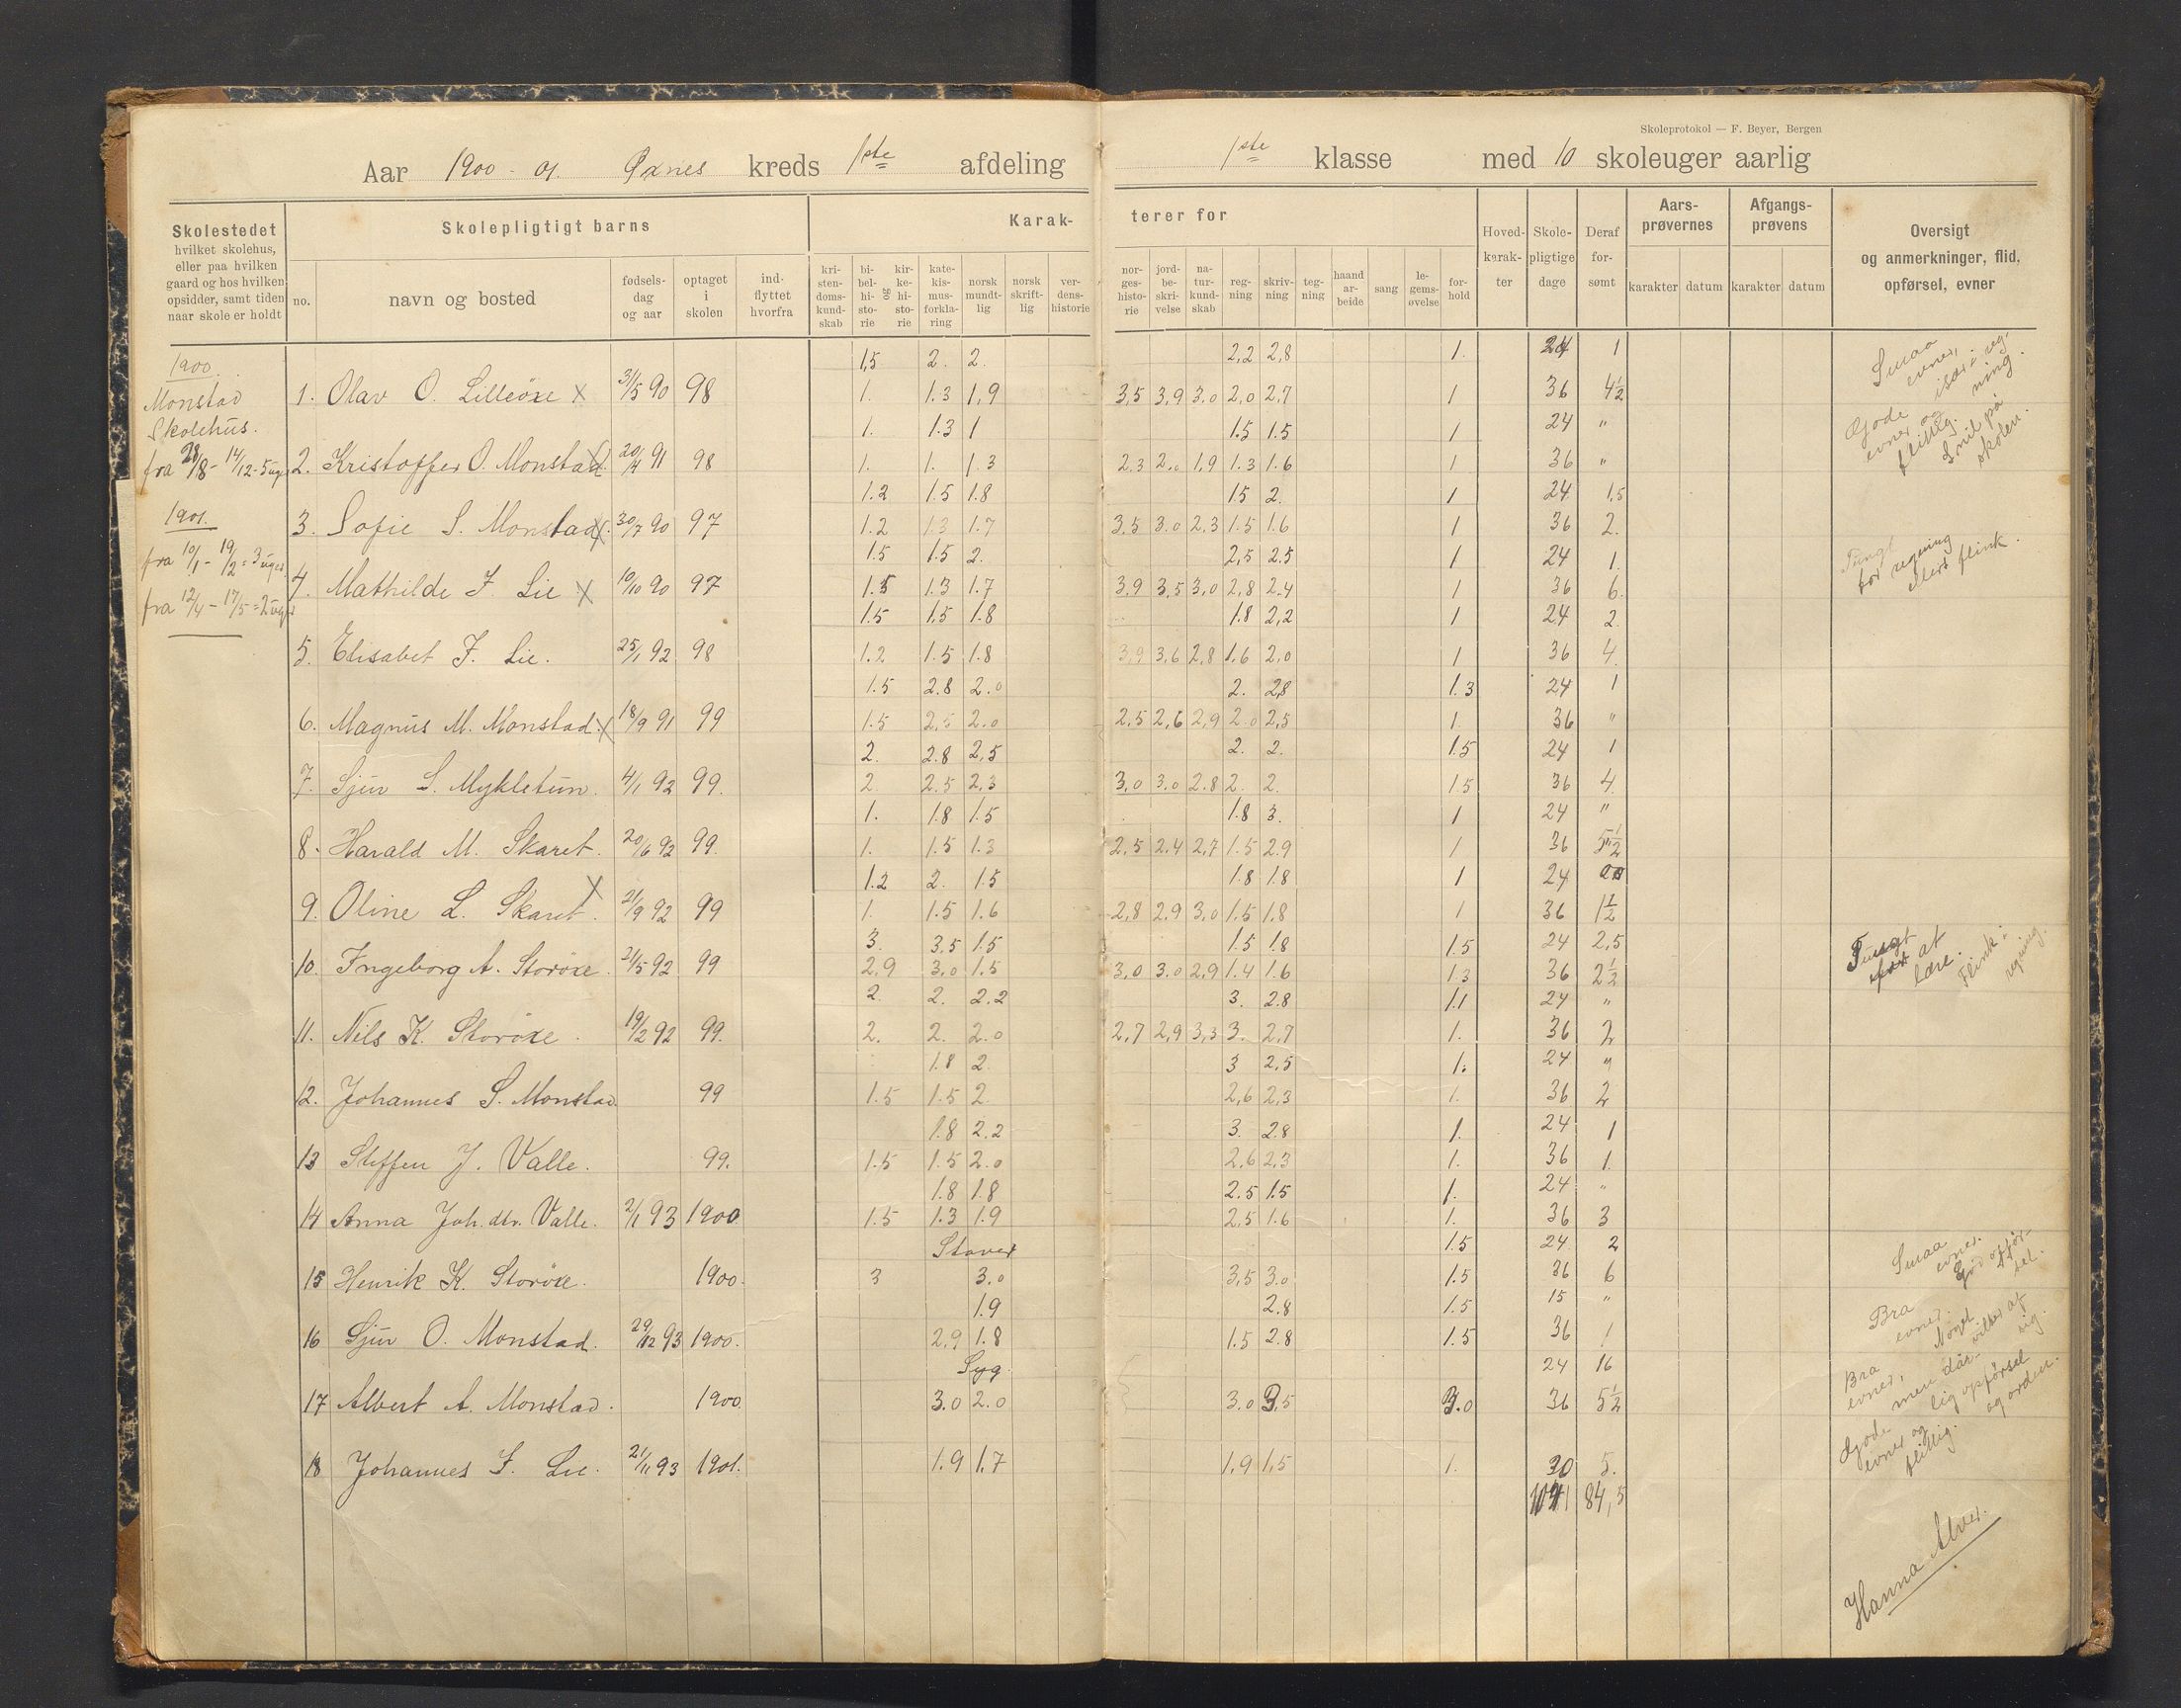 Skoleprotokol — F. Beyer, Bergen
Aar 1900 - 01. Øxnes kreds 1ste afdeling 1ste klasse med 10 skoleuger aarlig
Skolestedet
hvilket skolehus,
eller paa hvilken
gaard og hos hvilken
opsidder, samt tiden
naar skole er holdt
Skolepligtigt barns
no.
navn og bosted
fødsels-
dag
og aar
optaget
i
skolen
ind-
flyttet
hvorfra
Karak-
terer for
kri-
sten-
doms-
kund-
skab
bi-
bel-
hi-
sto-
rie
og
kir-
ke-
hi-
sto-
rie
kate-
kis-
mus-
forkla-
ring
norsk
mundt-
lig
norsk
skrift-
lig
ver-
dens-
historie
nor-
ges-
histo-
rie
jord-
be-
skri-
velse
na-
tur-
kund-
skab
reg-
ning
skriv-
ning
teg-
ning
haand
ar-
beide
sang
le-
gems-
øvelse
for-
hold
Hoved-
karak-
ter
Skole-
pligtige
dage
Deraf
for-
sømt
Aars-
prøvernes
karakter datum
Afgangs-
prøvens
karakter datum
Oversigt
og anmerkninger, flid,
opførsel, evner
1900.
Monstad
Skolehus.
fra 28/8 - 14/12 = 5 uger
1901.
fra 10/1 - 19/2 = 3 uger
fra 12/4 - 17/5 = 2 uger
1,5 2. 2. 2,2 2,8 1. 24 1
1. Olav O. Lilleöxe x 31/5 90 98 1. 1.3 1,9 3,5 3,9 3,0 2,0 2,7 1 36 4½
1. 1.3 1 1.5 1.5 1 24 "
2. Kristoffer O. Monstad. 20/4 91 98 1. 1. 1.3 2.3 2.0 1,9 1.3 1.6 1 36 "
1.2 1.5 1.8 1.5 2. 1 24 1,5
3. Sofie S. Monstad x 30/7 90 97 1.2 1.3 1.7 3.5 3.0 2.3 1.5 1.6 1 36 2.
1.5 1.5 2. 2,5 2.5 1 24 1.
4. Mathilde J. Lie x 10/10 90 97 1.5 1.3 1.7 3.9 3.5 3,0 2,8 2.4 1 36 6.
1.5 1,5 1.8 1.8 2,2 1 24 2
5. Elisabet J. Lie. 25/1 92 98 1.2 1.5 1.8 3,9 3,6 2,8 1,6 2,0 1 36 4.
1.5 2.8 2.0 2. 2,8 1.3 24 1
6. Magnus M. Monstad. x 18/9 91 99 1.5 2,5 2.0 2,5 2,6 2,9 2.0 2,5 1. 36 "
2. 2.8 2,5 2. 2. 1.5 24 1
7. Sjur S. Mykletun. 4/1 92 99. 2 2.5 2,3 3,0 3.0 2.8 2. 2. 1.5 36 4.
1. 1.8 1.5 1.8 3. 1 24 "
8. Harald M. Skaret. 20/6 92 99. 1. 1.5 1.3 2,5 2.4 2,7 1.5 2.9 1 36 5½
1.2 2. 1.5 1.8 1.8 1 24
9. Oline L. Skaret x. 21/9 92 99 1. 1.5 1.6 2,8 2.9 3,0 1.5 1.8 1 36 1½
3. 3,5 1.5 1.5 1.8 1.5 24 2,5
10. Ingeborg A. Storöxe. 21/5 92 99 2,9 3,0 1.5 3,0 3.0 2,9 1.4 1.6 1.3 36 2½
2. 2. 2.2 3. 2.8 1.1 24 "
11. Nils K. Storöxe. 19/2 92 99. 2. 2. 2.0 2,7 2,9 3,3 3. 2,7 1. 36 2
1.8 2. 3 2,5 1. 24 "
12. Johannes S. Monstad. 99 1.5 1.5 2. 2,6 2,3 1. 36 2
1.8 2.2 3. 2.8 1. 24 1
13 Steffen J. Valle. 99. 1.5 1.5 2.0 2.6 2,3 1. 36 1.
1.8 1.8 2.5 1.5 1. 24 "
14 Anna Joh. dtr. Valle. 2/1 93 1900 1.5 1.3 1.9 2,5 1.6 1. 36 3
Staver 1.5 24 2
15 Henrik K. Storöxe. 1900. 3 3.0 3,5 3.0 1.5 36 6
1.9 2.8 1.5 15 "
16 Sjur O. Monstad. 29/12 93 1900. 2.9 1.8 1.5 2.8 1.5 36 1
Syg. 24 16
17 Albert A. Monstad. 1900. 3.0 2.0 3.0 3,5 3.0 36 5½
18 Johannes J. Lie. 21/11 93 1901. 1.9 1,7 1,9 1,5 1. 30 5.
84,5
Smaa
evner,
især i reg-
ning.
Gode
evner og
flittig.
Smil på
skolen.
Tungt
for regning
ellers flink.
Tungt
for at
lære.
Flink i
regning.
Smaa
evner.
God opfør-
sel.
Bra
evner.
Noget
vilter af
sig.
Bra
evner,
men dår-
lig opførsel
og orden.
Gode
evner og
flittig.
Hanna Alver.